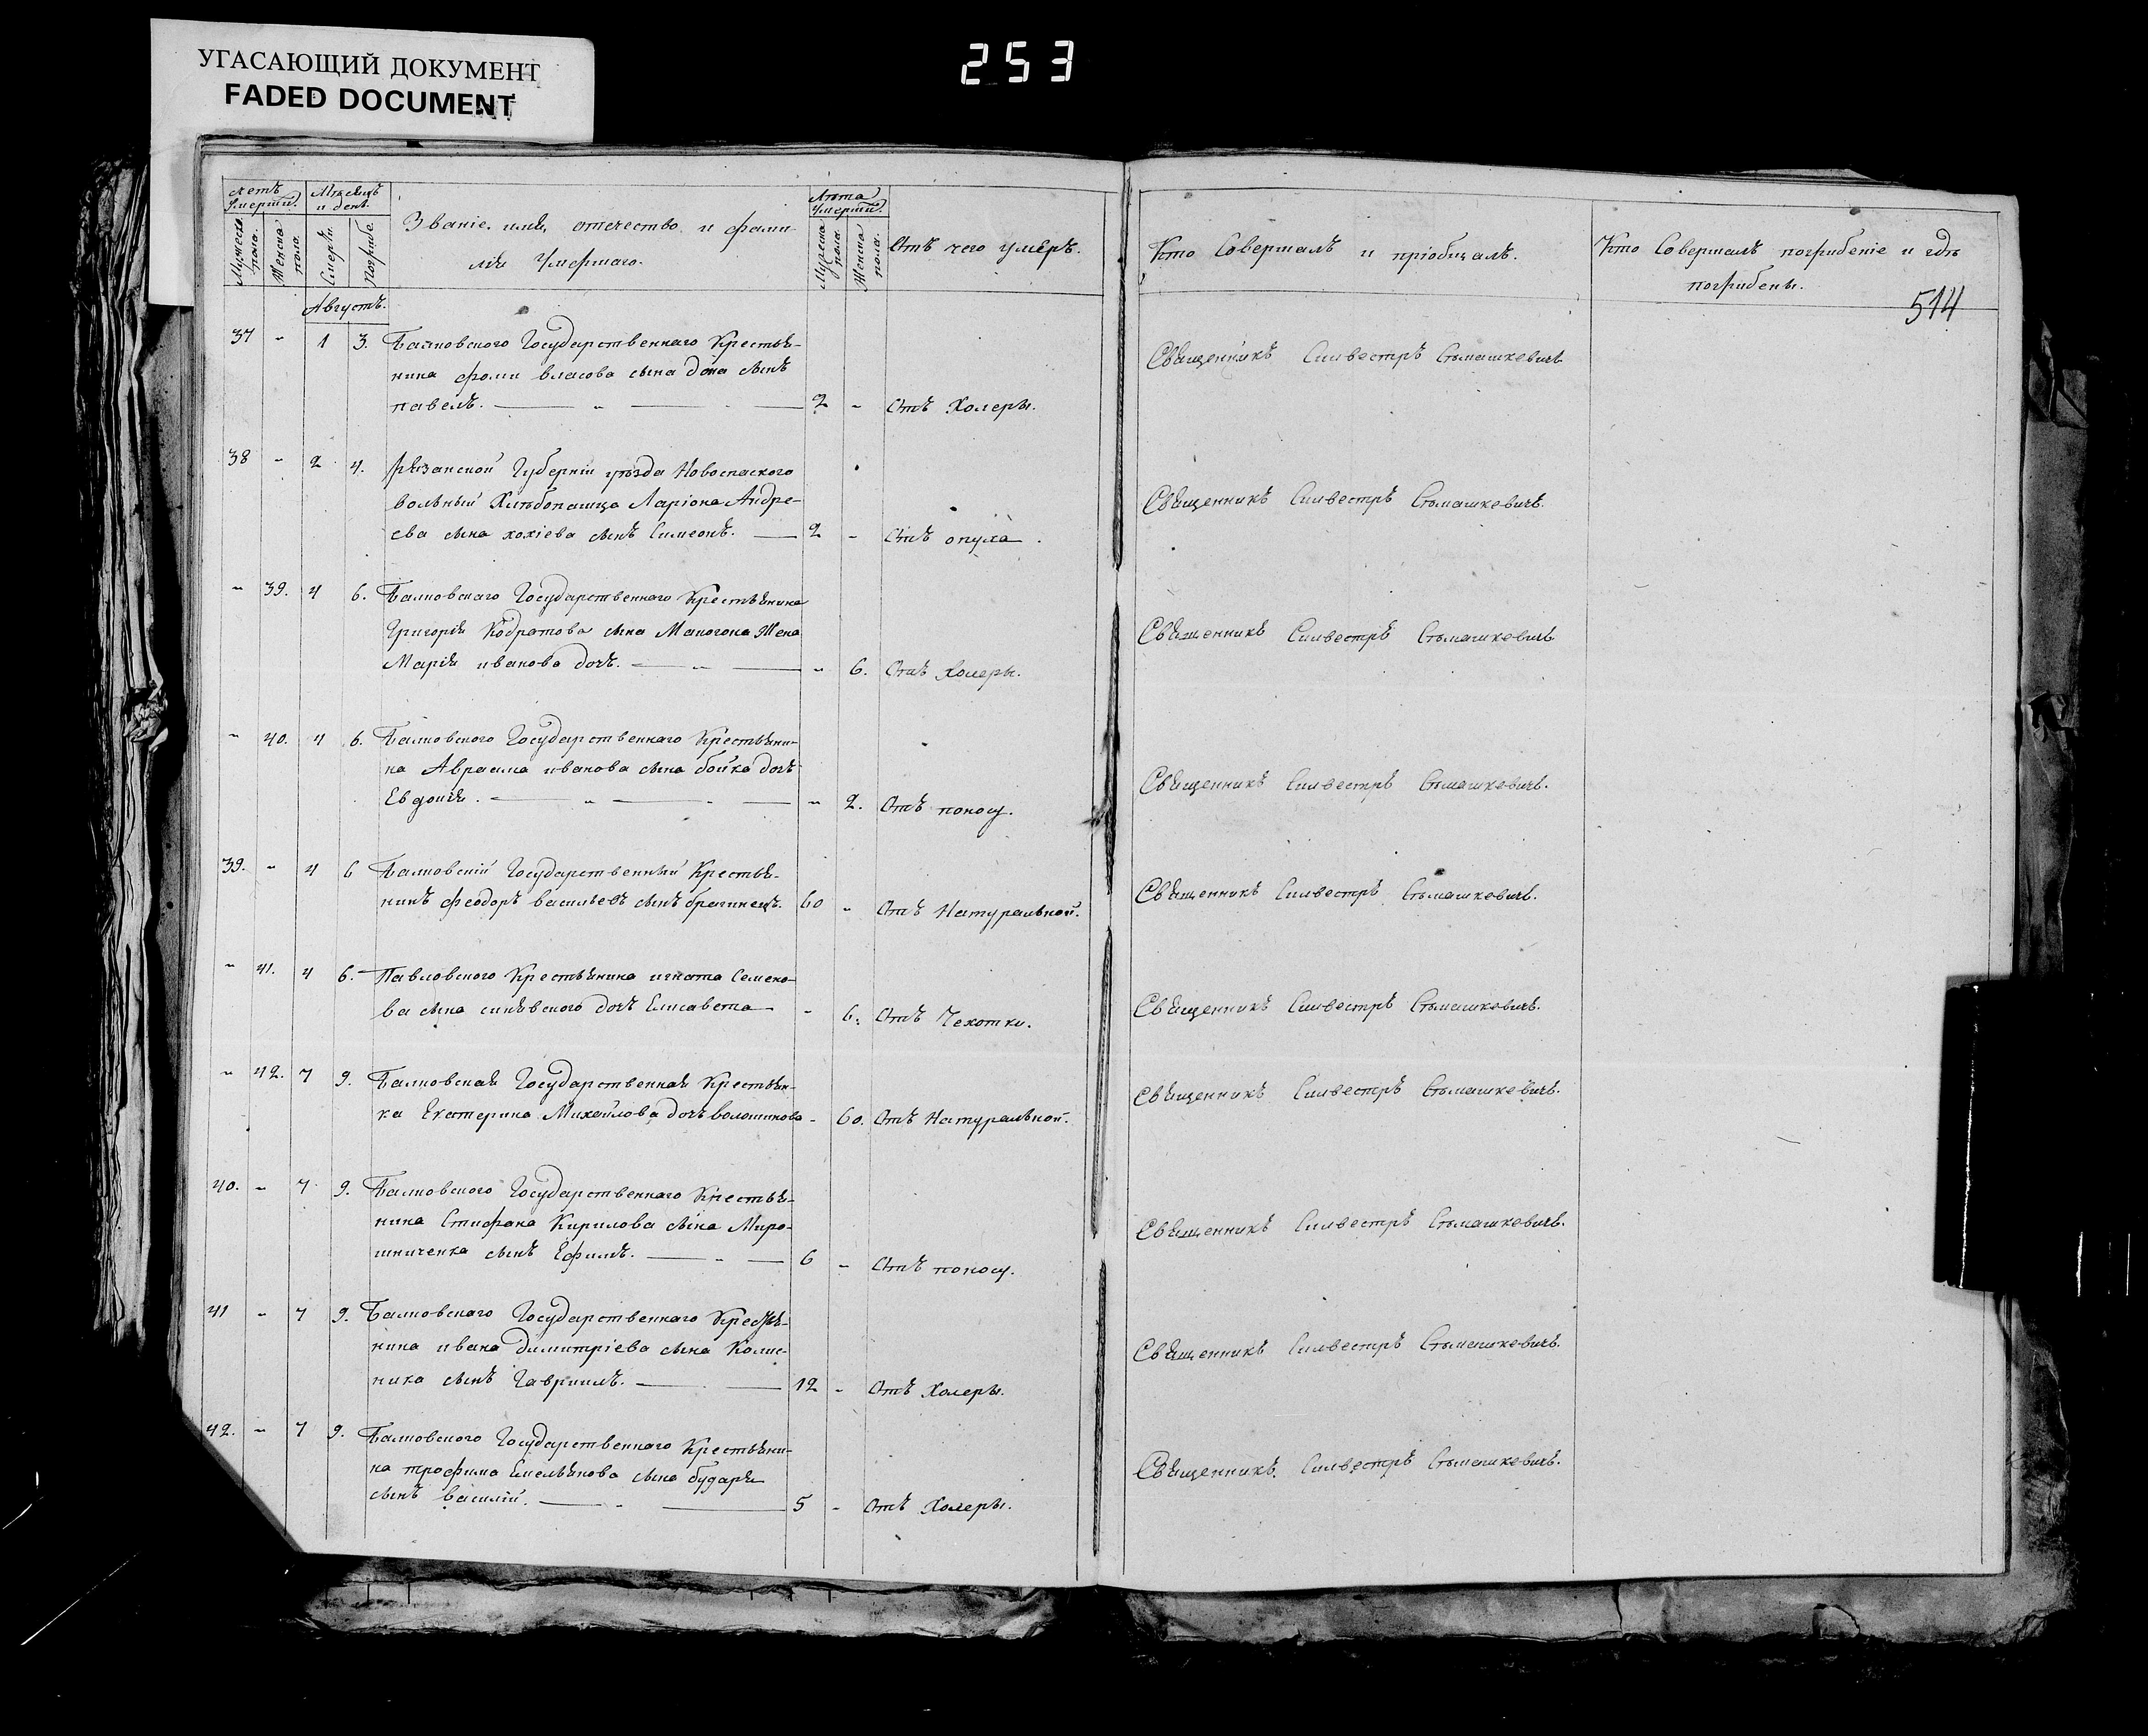 УГАСАЮЩИЙ ДОКУМЕНТ
FADED DOCUMENT
253
514
Счетъ Умерши.
Мужеска пола.
Женска пола.
Мѣсяцъ и день.
Смерти.
Погребе.
Званіе, имя, отечество и фами-
лія Умершаго.
Лѣта Умерши.
Мужеска пола.
Женска пола.
Отъ чего умеръ.
Кто Совершалъ и пріобщалъ.
Кто Совершалъ погребеніе и гдѣ
погребены.
Августъ.
37 - 1 3. Балковского Государственнаго Крестья-
нина фомы власова сына сынъ
павелъ. 2 - Отъ Холеры.
Священникъ Силвестръ Стымашкевичъ
38 - 2 4. Рязанской Губерніи уѣзда Новоспаского
вольный Хлѣбопашца Ларіона Андре-
ева сына хохіева сынъ Симеонъ. 2 - Отъ опуха.
Священникъ Силвестръ Стымашкевичъ.
- 39. 4 6. Балковскаго Государственнаго Крестьянина
Григорія Кодратова сына Маногона Жена
Марія иванова дочь. - 6. Отъ Холеры.
Священникъ Силвестръ Стымашкевичъ
- 40. 4 6. Балковского Государственнаго Крестьяни-
на Авраама иванова сына бойка дочь
Евдокія. - 2. Отъ поносу.
Священникъ Силвестръ Стымашкевичъ.
39. - 4 6 Балковскій Государственный Крестья-
нинъ феодоръ васильевъ сынъ брагинецъ. 60 - Отъ Натуральной.
Священникъ Силвестръ Стымашкевичъ.
- 41. 4 6. Павловского Крестьянина игната Семено-
ва сына синѣвского дочь Елисавета - 6. Отъ Чехотки.
Священникъ Силвестръ Стымашкевичъ.
- 42. 7 9. Балковская Государственная Крестьян-
ка Екатерина Михайлова дочь волошинова - 60. Отъ Натуральной.
Священникъ Силвестръ Стымашкевичъ.
40. - 7 9. Балковского Государственнаго Крестья-
нина Стефана Кирилова сына Миро-
шниченка сынъ Ефимъ. 6 - Отъ поносу.
Священникъ Силвестръ Стымашкевичъ.
41 - 7 9. Балковскаго Государственнаго Крестья-
нина ивана Димитріева сына Колис-
ника сынъ Гавріилъ. 12 - Отъ Холеры.
Священникъ Силвестръ Стымашкевичъ.
42. - 7 9. Балковского Государственнаго Крестьяни-
на трофима Емельянова сына бударя
сынъ василій. 5 - Отъ Холеры.
Священникъ. Силвестръ Стымашкевичъ.